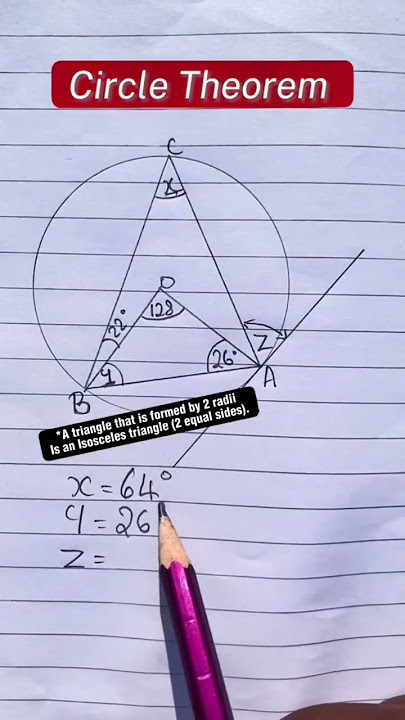 Circle Theorem
C
x
O
128
22°
26°
z
y
A
B
*A triangle that is formed by 2 radii
Is an Isosceles triangle (2 equal sides).
x = 64°
y = 26
z =